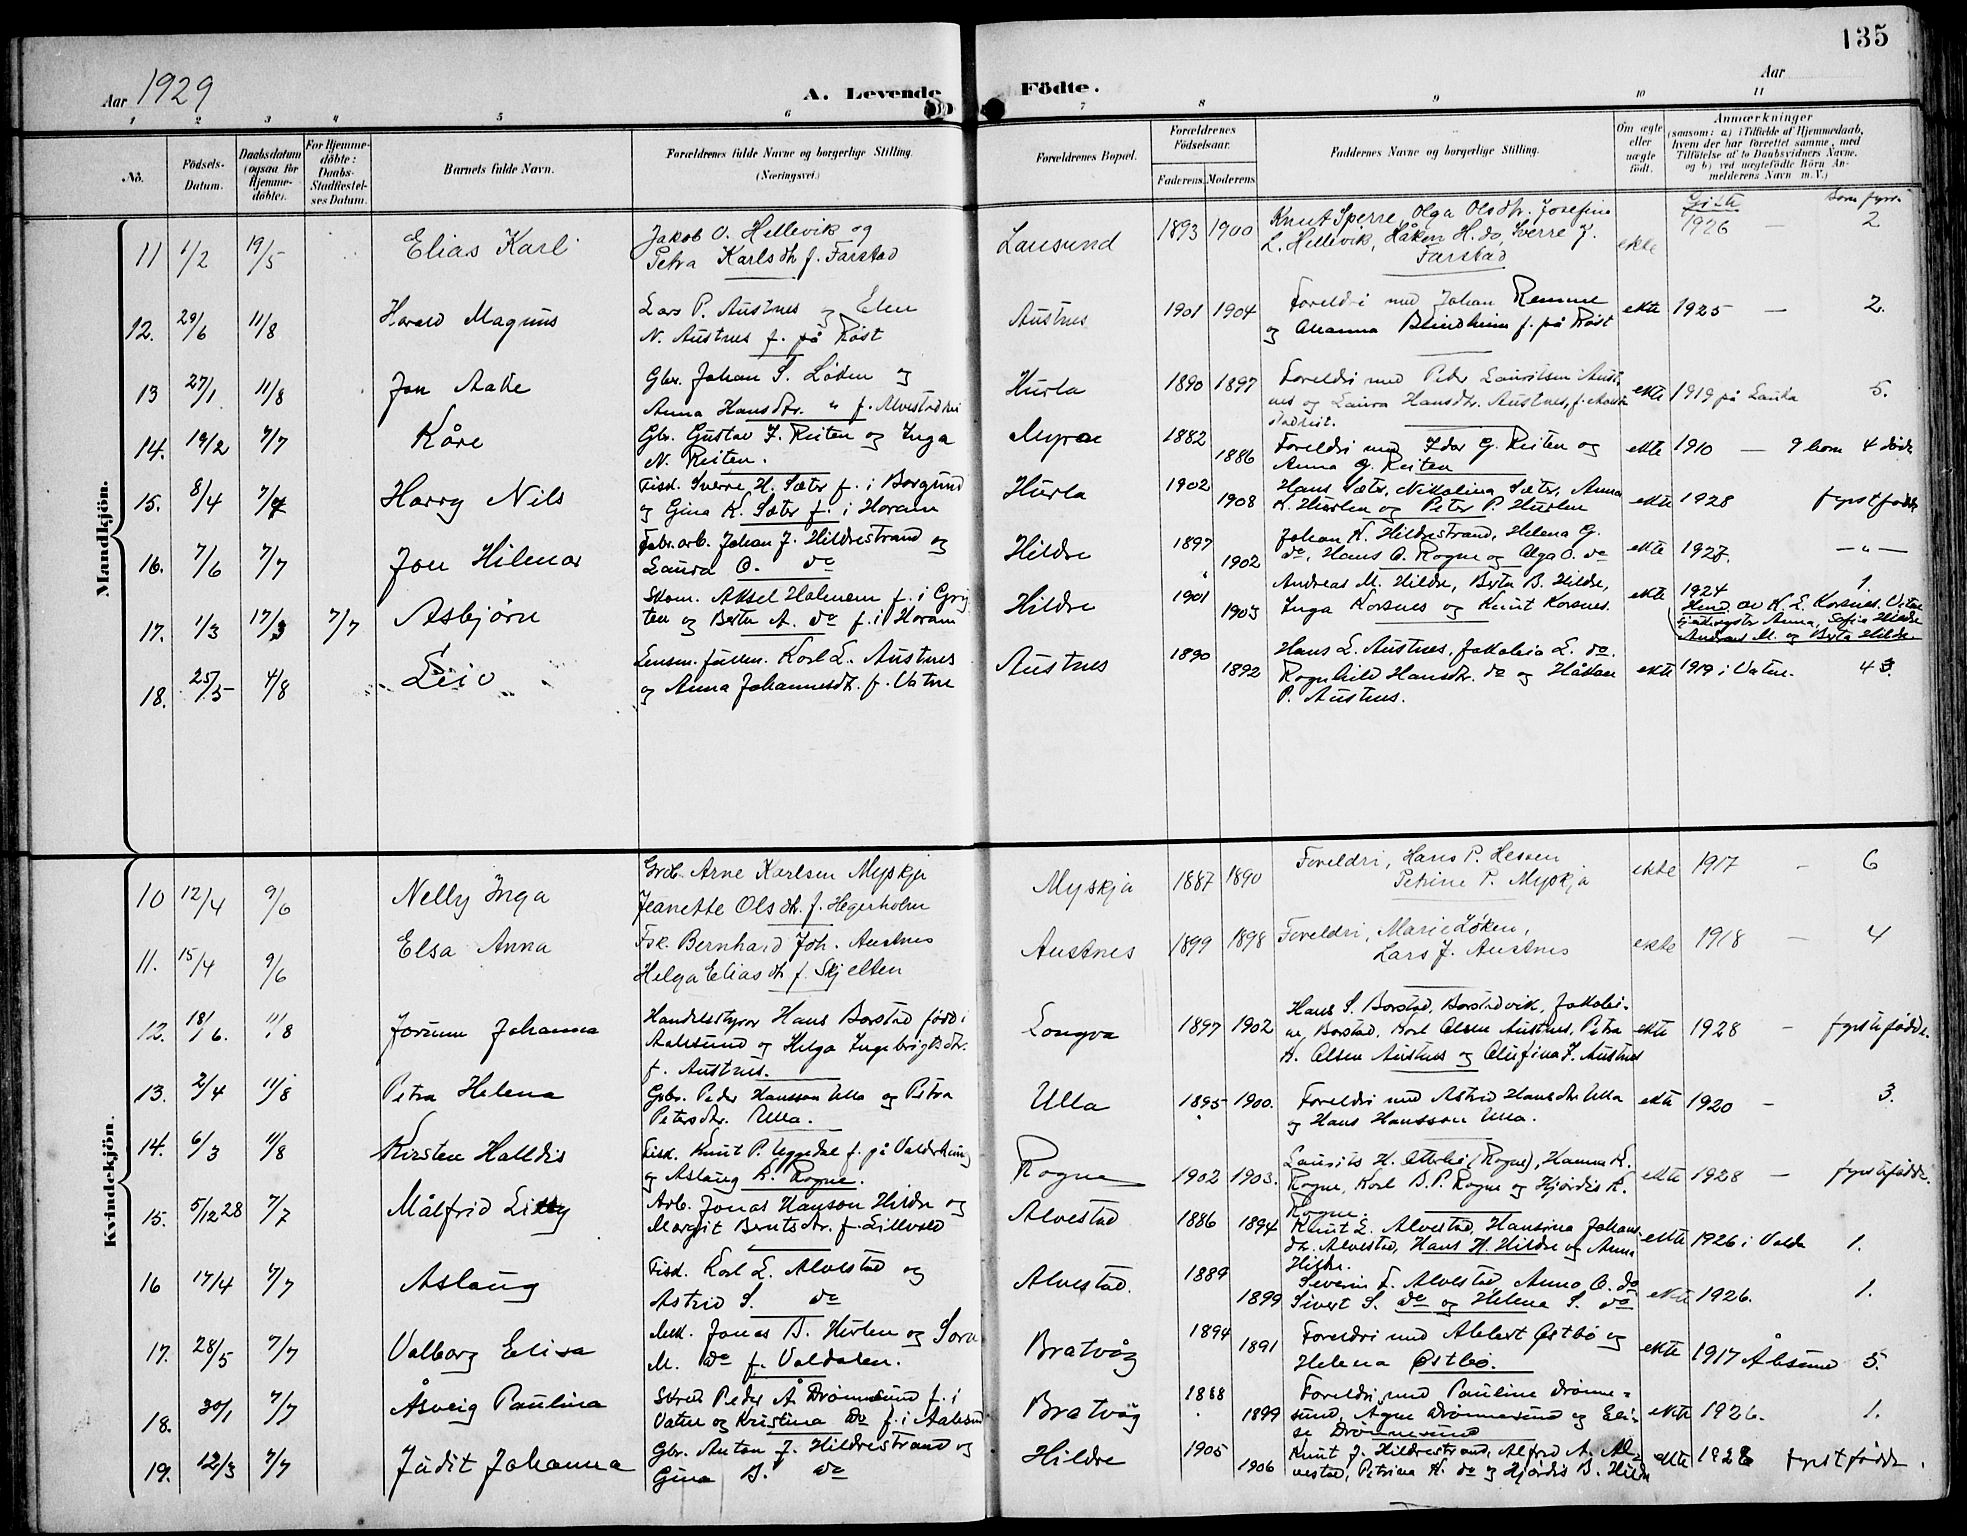 135
Aar 1929
A. Levende Födte.
Aar
1 2 3 4 5 6 7 8 9 10 11
No.
Födsels-Datum.
Daabsdatum (ogsaa for Hjemme-döbte).
For Hjemme-döbte: Daabs-Stadfæstel-ses Datum.
Barnets fulde Navn.
Forældrenes fulde Navne og borgerlige Stilling. (Næringsvei.)
Forældrenes Bopæl.
Forældrenes Födselsaar.
Faderens. Moderens
Faddernes Navne og borgerlige Stilling.
Om ægte eller uægte födt.
Anmærkninger
(saasom: a) i Tilfælde af Hjemmedaab,
hvem der har forrettet samme, med
Tilföielse af to Daabsvidners Navne.
og b) ved uægtefödte Börn An-
melderens Navn m. V.)
Mandkjön.
11 1/2 19/5 Elias Karl
Jakob O. Hellevik og
Petra Karlsdtr f. Farstad
Lausund 1893 1900
Knut Sperre, Olga Olsdtr. Josefine
L. Hellevik, Håken H. do, Sverre J.
Farstad
ekte Gifte 1926 — 2
12. 29/6 11/8 Harald Magnus
Lars P. Austnes og Elen
N. Austnes f. på Röst
Austnes 1901 1904
Foreldri med Johan Remme
og Blindheim f. på Röst
ekte 1925 — 2.
13 27/1 11/8 Jon
Gbr. Johan S. Löken og
Anna Hansdtr. " f.
Hurla 1890 1897
Foreldri med Peder Lauritsen
nes og Laura Hansdtr. Austnes, f.
ekte 1919 på 5.
14. 19/2 7/7 Kåre
Gbr. Gustav J. Reiten og Inga
N. Reiten.
Myrae 1882 1886
Foreldri med Idar G. Reiten og
Anna G. Reiten
ekte 1910 — 9 born 4 döde
15. 8/4 7/7 Harry Nils
Fisk. Sverre H. Sæter f. i Borgund
og Gina K. Sæter f. i Haram
Hurla 1902 1908
Hans Sæter, Nikolina Sæter, Anna
K. Hurlen og Peter P. Hurlen
ekte 1928 fyrstfödde
16. 7/6 7/7 Jon Hilmar
Fabr.arb. Johan J. Hildrestrand og
Laura O. do
Hildre 1897 1902
Johan K. Hildrestrand, Helena G.
do, Hans O. Rogne og Olga O. do
ekte 1927. — " —
17. 1/3 17/3 7/7 Asbjörn
Skom. Aksel Holmem f. i Gryt
ten og Berta A. do f. i Haram
Hildre 1901 1903
Andreas M. Hildre, Berta B. Hildre,
Inga Korsnes og Knut Korsnes.
ekte 1924 1.
av K. E. Korsnes.
Anna, Sofie Hildre
Andreas M. og Berta Hildre
18. 25/5 4/8 Leiv
Lensm. fullm. Karl L. Austnes
og Anna Johannesdtr. f. Vatne
Austnes 1890 1892
Hans L. Austnes, Jakobia L. do.
Ragnhild Hansdtr. do og Håkon
P. Austnes.
ekte 1919 i Vatne. 4 3.
Kvindekjön.
10 12/4 9/6 Nelly Inga
Grdb. Arne Karlsen Myskja
Jeanette Olsdtr. f. Hegerholm
Myskja 1887 1890
Foreldri, Hans P. Hessen
Petrine P. Myskja
ekte 1917 — 6
11. 15/4 9/6 Elsa Anna
Fsk. Bernhard Joh. Austnes
Helga Eliasdtr f. Skjelten
Austnes 1899 1898
Foreldri, Marie Løken,
Lars J. Austnes
ekte 1918 — 4
12. 18/6. 11/8 Jorunn Johanna
Handelsstyrar Hans Borstad född i
Aalesund og Helga Ingebrigtsdtr.
f. Austnes.
Longva 1897 1902
Hans S. Borstad, Borstadvik, Jakobi-
ne Borstad, Karl Olsen Austnes, Petra
K. Olsen Austnes og Olufina J. Austnes
ekte 1928 — fyrstefödde.
13. 2/4 11/8 Petra Helena
Gbr. Peder Hansson Ulla og Petra
Petersdtr. Ulla.
Ulla 1895 1900.
Foreldri med Astrid Hansdtr. Ulla
og Hans Hansson Ulla.
ekte 1920 — 3.
14. 6/3 11/8 Kirsten Halldis
Fisk. Knut P. Uggedal f. på Valderhaug
og Aslaug K. Rogne.
Rogne 1902 1903.
Laurits H. Otterlei (Rogne), Hanna K.
Rogne, Karl B. P. Rogne og Hjördis K.
Rogne.
ekte 1928 — fyrstefödde.
15. 5/12 28 7/7 Målfrid Lilly
Arb. Jonas Hansson Hildre og
Margit Berntsdtr. f. Lillevold
Alvestad 1886 1894
Knut L. Alvestad, Hansina Johans-
dtr. Alvestad, Hans H. Hildre og Anna
Hildre.
ekte 1926 i Volda 1.
16 17/4 7/7 Aslaug
Fisk. Karl L. Alvestad og
Astrid S. do
Alvestad. 1889 1899
Severin L. Alvestad, Anna O. do
Sivert S. do og Helene S. do
ekte 1926. 1.
17. 28/5 7/7 Valborg Elisa
Mek. Jonas B. Hurlen og Sara
M. do f. Valdalen.
Bratvåg 1894 1891
Foreldri med Albert Östbö og
Helena Östbö.
ekte 1917 Ålesund 5.
18. 30/1 7/7 Åsveig Paulina
Skred. Peder Å. Drönnesund f. i
Vatne og Kristina do f. i Aalesund
Bratvåg 1888 1899
Foreldri med Pauline Drönne-
sund, Agne Drönnesund og Eli-
se Drönnesund
ekte 1926. 1.
19. 12/3 7/7 Judit Johanna
Gbr. Anton J. Hildrestrand og
Gina B. do
Hildre 1905 1906
Knut J. Hildrestrand, Alfred A. Al-
vestad, Petrina K. do og Hjördis B. Hildre
ekte 1928 fyrstfödde.